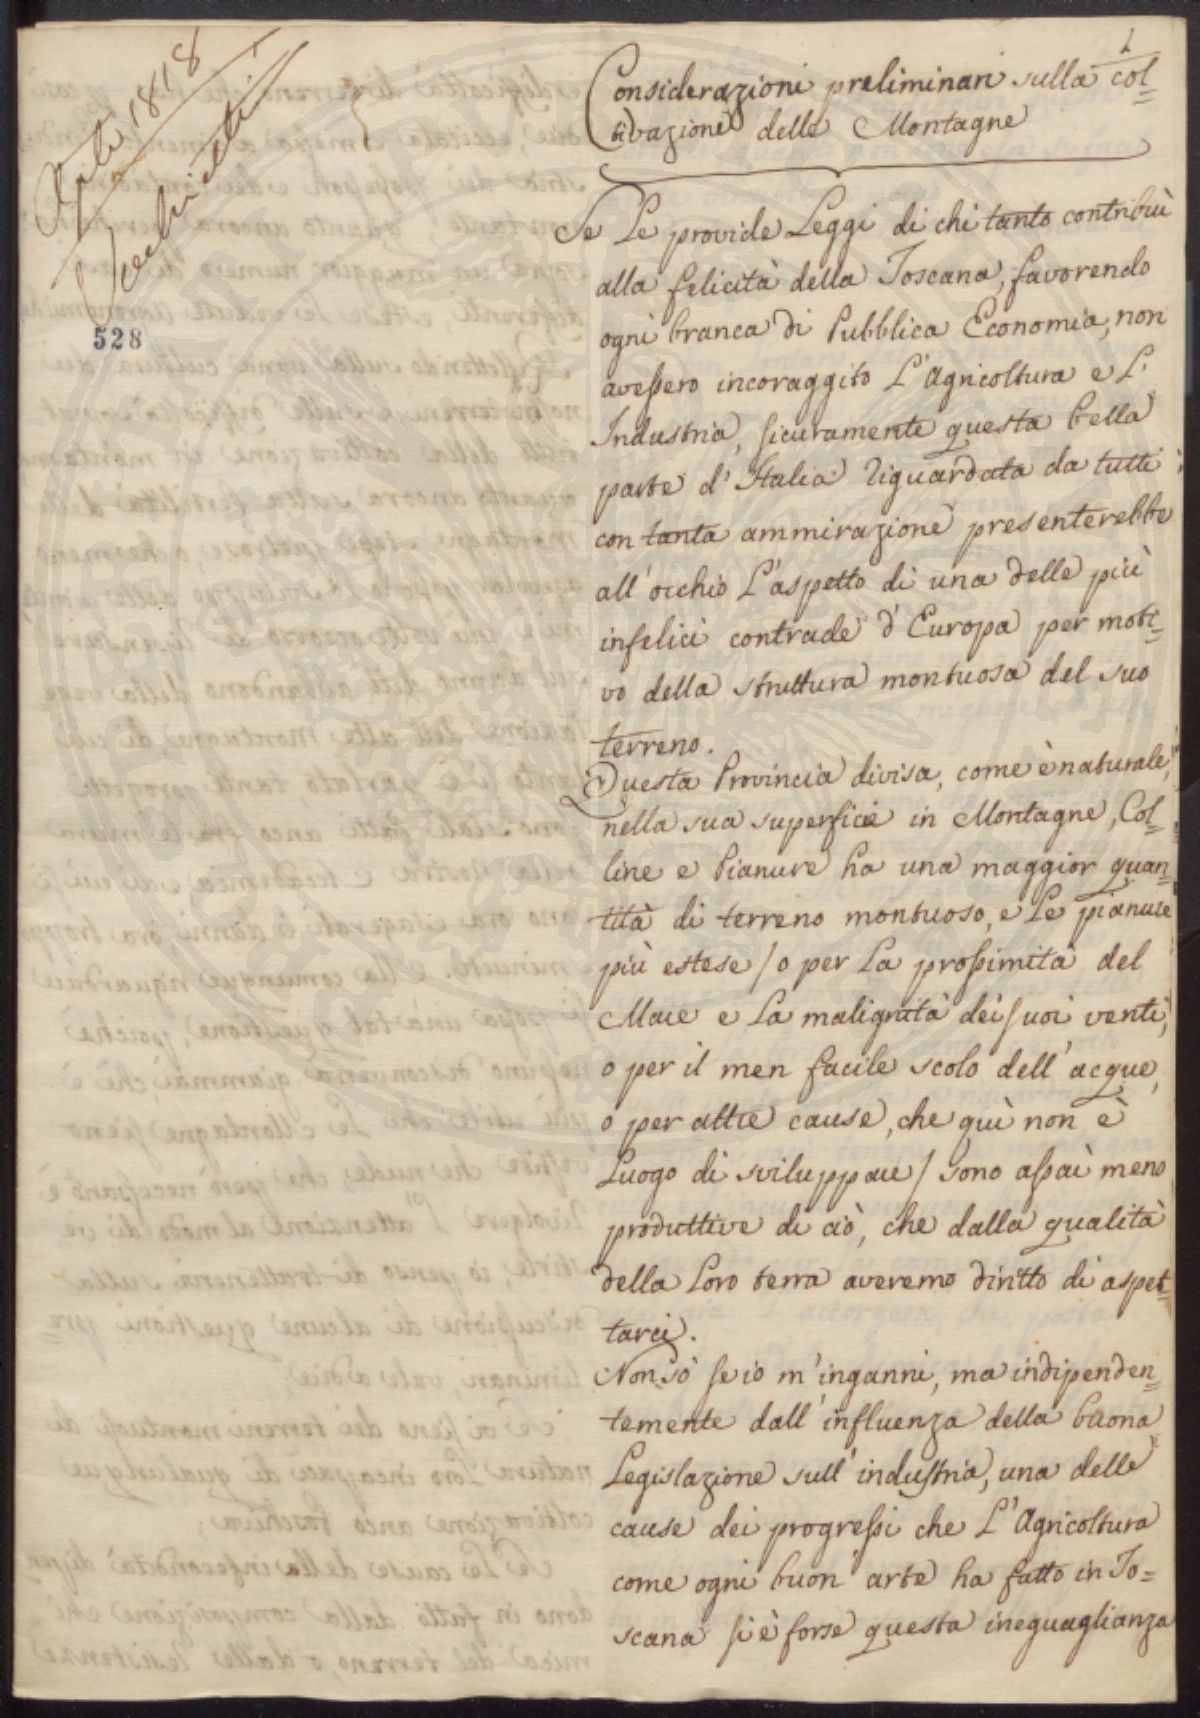 1
Aprile 1818
Vecchietti
528
Considerazioni preliminari sulla col=
tivazione delle Montagne
Se Le provide Leggi di chi tanto contribuì
alla felicità della Toscana, favorendo
ogni branca di Pubblica Economia, non
avessero incoraggito L'Agricoltura e L'
Industria, sicuramente questa bella
parte d'Italia riguardata da tutti
con tanta ammirazione presenterebbe
all'occhio L'aspetto di una delle più
infelici contrade d'Europa per moti=
vo della struttura montuosa del suo
terreno.
Questa Provincia divisa, come è naturale,
nella sua superficie in Montagne, Col=
line e Pianure ha una maggior quan=
tità di terreno montuoso, e Le pianure
più estese / o per La prossimità del
Mare e La malignità dei suoi venti,
o per il men facile scolo dell'acque,
o per altre cause, che quì non è
Luogo di sviluppare / sono assai meno
produttive di ciò, che dalla qualità
della Loro terra averemo diritto di aspet=
tarci.
Non sò se io m'inganni, ma indipenden=
temente dall'influenza della buona
Legislazione sull'industria, una delle
cause dei progressi che L'Agricoltura
come ogni buon'arte ha fatto in To=
scana si è forse questa ineguaglianza